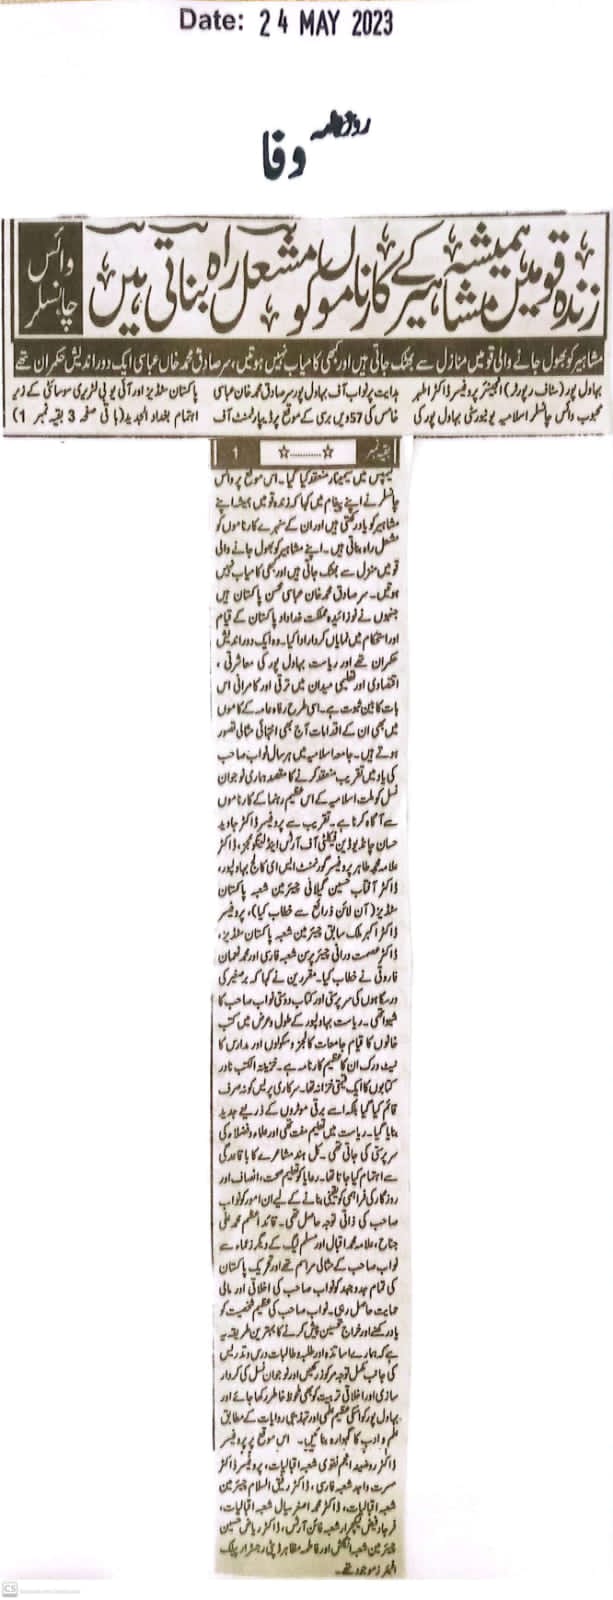 Date: 24 MAY 2023
روزنامہ
وفا
زندہ قومیں ہمیشہ مشاہیر کے کارناموں کو مشعل راہ بناتی ہیں
وائس
چانسلر
مشاہیر کو بھول جانے والی قومیں منازل سے بھٹک جاتی ہیں اور کبھی کامیاب نہیں ہوتیں، سر صادق محمد خاں عباسی ایک دور اندیش حکمران تھے
بہاول پور (سٹاف رپورٹر) انجینئر پروفیسر ڈاکٹر اطہر
محبوب وائس چانسلر اسلامیہ یونیورسٹی بہاول پور کی
ہدایت پر نواب آف بہاول پور سر صادق محمد خان عباسی
خامس کی 57ویں برسی کے موقع پر ڈیپارٹمنٹ آف
پاکستان سٹڈیز اور آئی یو بی لٹریری سوسائٹی کے زیر
اہتمام بغداد الجدید (باقی صفحہ 3 بقیہ نمبر 1)
بقیہ نمبر 1
کیمپس میں سیمینار منعقد کیا گیا۔ اس موقع پر وائس
چانسلر نے اپنے پیغام میں کہا کہ زندہ قومیں ہمیشہ اپنے
مشاہیر کو یاد رکھتی ہیں اور ان کے سنہرے کارناموں کو
مشعل راہ بناتی ہیں۔ اپنے مشاہیر کو بھول جانے والی
قومیں منزل سے بھٹک جاتی ہیں اور کبھی کامیاب نہیں
ہوتیں۔ سر صادق محمد خان عباسی محسن پاکستان ہیں
جنہوں نے نوزائیدہ مملکت خداداد پاکستان کے قیام
اور استحکام میں نمایاں کردار ادا کیا۔ وہ ایک دور اندیش
حکمران تھے اور ریاست بہاول پور کی معاشرتی،
اقتصادی اور تعلیمی میدان میں ترقی اور کامرانی اس
بات کا بین ثبوت ہے۔ اسی طرح رفاہ عامہ کے کاموں
میں بھی ان کے اقدامات آج بھی انتہائی مثالی تصور
ہوتے ہیں۔ جامعہ اسلامیہ میں ہر سال نواب صاحب
کی یاد میں تقریب منعقد کرنے کا مقصد ہماری نوجوان
نسل کو ملت اسلامیہ کے اس عظیم رہنما کے کارناموں
سے آگاہ کرنا ہے۔ تقریب سے پروفیسر ڈاکٹر جاوید
حسان چانڈیو ڈین فیکلٹی آف آرٹس اینڈ لینگویجز، ڈاکٹر
علامہ محمد طاہر پروفیسر گورنمنٹ ایس ای کالج بہاولپور،
ڈاکٹر آفتاب حسین گیلانی چیئرمین شعبہ پاکستان
سٹڈیز (آن لائن ذرائع سے خطاب کیا)، پروفیسر
ڈاکٹر اکبر ملک سابق چیئرمین شعبہ پاکستان سٹڈیز،
ڈاکٹر عصمت درانی چیئرپرسن شعبہ فارسی اور محمد نعمان
فاروقی نے خطاب کیا۔ مقررین نے کہا کہ برصغیر کی
درسگاہوں کی سرپرستی اور کتاب دوستی نواب صاحب کا
شیوا تھی۔ ریاست بہاولپور کے طول و عرض میں کتب
خانوں کا قیام جامعات کالجز و سکولوں اور مدارس کا
نیٹ ورک ان کا عظیم کارنامہ ہے۔ خزینۃ الکتب نادر
کتابوں کا ایک قیمتی خزانہ تھا۔ سرکاری پریس کو نہ صرف
قائم کیا گیا بلکہ اسے برقی موٹروں کے ذریعے جدید
بنایا گیا۔ ریاست میں تعلیم مفت تھی اور علماء و فضلاء کی
سرپرستی کی جاتی تھی۔ کل ہند مشاعرے کا باقاعدگی
سے اہتمام کیا جاتا تھا۔ رعایا کو تعلیم صحت، انصاف اور
روزگار کی فراہمی کو یقینی بنانے کے لیے ان امور کو نواب
صاحب کی ذاتی توجہ حاصل تھی۔ قائد اعظم محمد علی
جناح، علامہ محمد اقبال اور مسلم لیگ کے دیگر زعماء سے
نواب صاحب کے مثالی مراسم تھے اور تحریک پاکستان
کی تمام جدوجہد کو نواب صاحب کی اخلاقی اور مالی
حمایت حاصل رہی۔ نواب صاحب کی عظیم شخصیت کو
یاد رکھنے اور خراج تحسین پیش کرنے کا بہترین طریقہ یہ
ہے کہ ہمارے اساتذہ اور طلبہ و طالبات درس و تدریس
کی جانب مکمل توجہ مرکوز رکھیں اور نوجوان نسل کی کردار
سازی اور اخلاقی تربیت کو بھی ملحوظ خاطر رکھا جائے اور
بہاول پور کو اسکی عظیم علمی اور تہذیبی روایات کے مطابق
علم و ادب کا گہوارہ بنائیں۔ اس موقع پر پروفیسر
ڈاکٹر روضینہ انجم نقوی شعبہ اقبالیات، پروفیسر ڈاکٹر
مسرت واجد شعبہ فارسی، ڈاکٹر رفیق الاسلام چیئرمین
شعبہ اقبالیات، ڈاکٹر محمد اصغر سیال شعبہ اقبالیات،
فرجاد فیض لیکچرار شعبہ فائن آرٹس، ڈاکٹر ریاض حسین
چیئرمین شعبہ انگلش اور فاطمہ مظاہر ڈپٹی رجسٹرار پبلک
افیئرز موجود تھے۔
CS